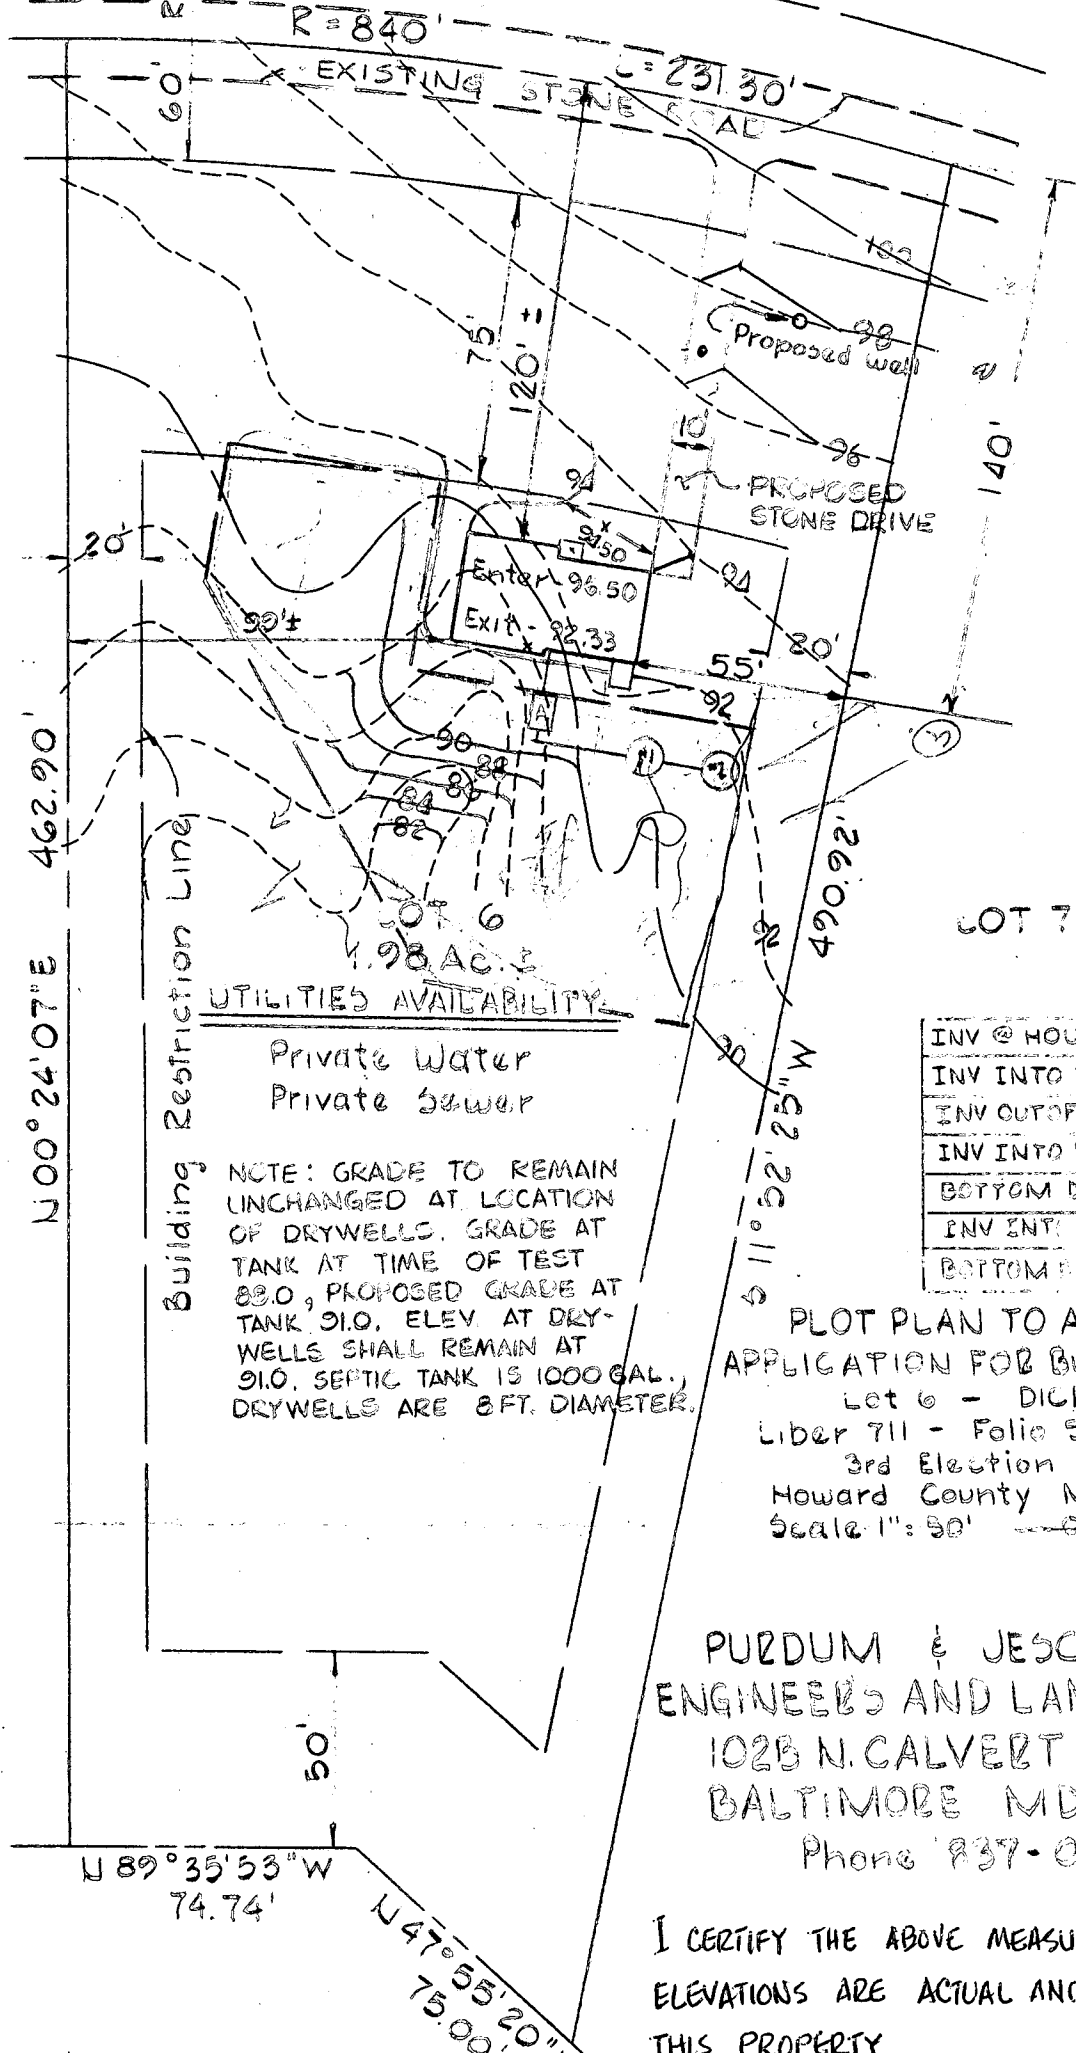 R = 840'
L = 231.30'
EXISTING STONE ROAD
60'
100
98
Proposed well
96
75'
120' ±
10'
94
PROPOSED
STONE DRIVE
140'
20'
94.50
Enter 96.50
94
Exit - 92.33
90'±
55'
20'
92
A
3
90
88
86
84
82
#1
#2
LOT 6
1.98 AC. ±
LOT 7
N 00° 24' 07" E 462.90'
490.92'
S 11° 52' 25" W
90
Building Restriction Line
UTILITIES AVAILABILITY
Private Water
Private Sewer
NOTE: GRADE TO REMAIN
UNCHANGED AT LOCATION
OF DRYWELLS. GRADE AT
TANK AT TIME OF TEST
88.0, PROPOSED GRADE AT
TANK 91.0. ELEV. AT DRY-
WELLS SHALL REMAIN AT
91.0. SEPTIC TANK IS 1000 GAL.,
DRYWELLS ARE 8 FT. DIAMETER.
INV @ HOU
INV INTO
INV OUT OF
INV INTO
BOTTOM D
INV INT
BOTTOM
PLOT PLAN TO A
APPLICATION FOR BU
Lot 6 - DIC
Liber 711 - Folio 5
3rd Election
Howard County M
Scale 1": 50'
50'
PURDUM & JESC
ENGINEERS AND LAN
1023 N. CALVERT
BALTIMORE MD
Phone 837-0
N 89° 35' 53" W
74.74'
N 47° 55' 20"
75.00'
I CERTIFY THE ABOVE MEASU
ELEVATIONS ARE ACTUAL AND
THIS PROPERTY